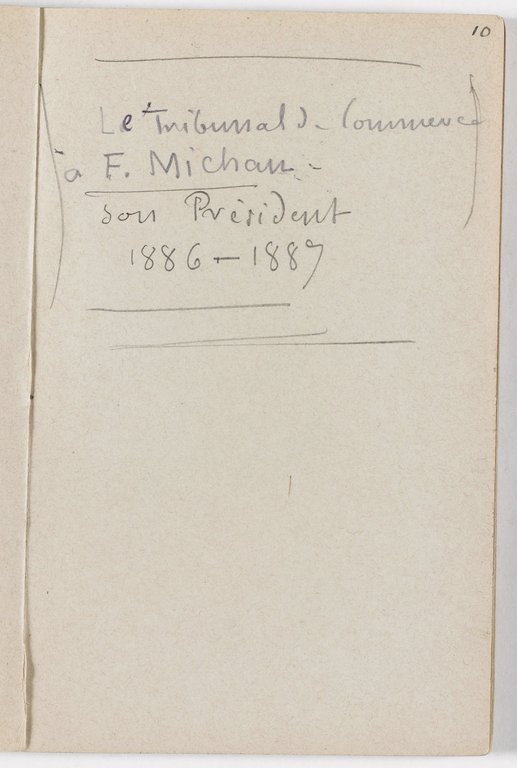 10
Le Tribunal de Commerce
à F. Michau
son Président
1886 – 1887